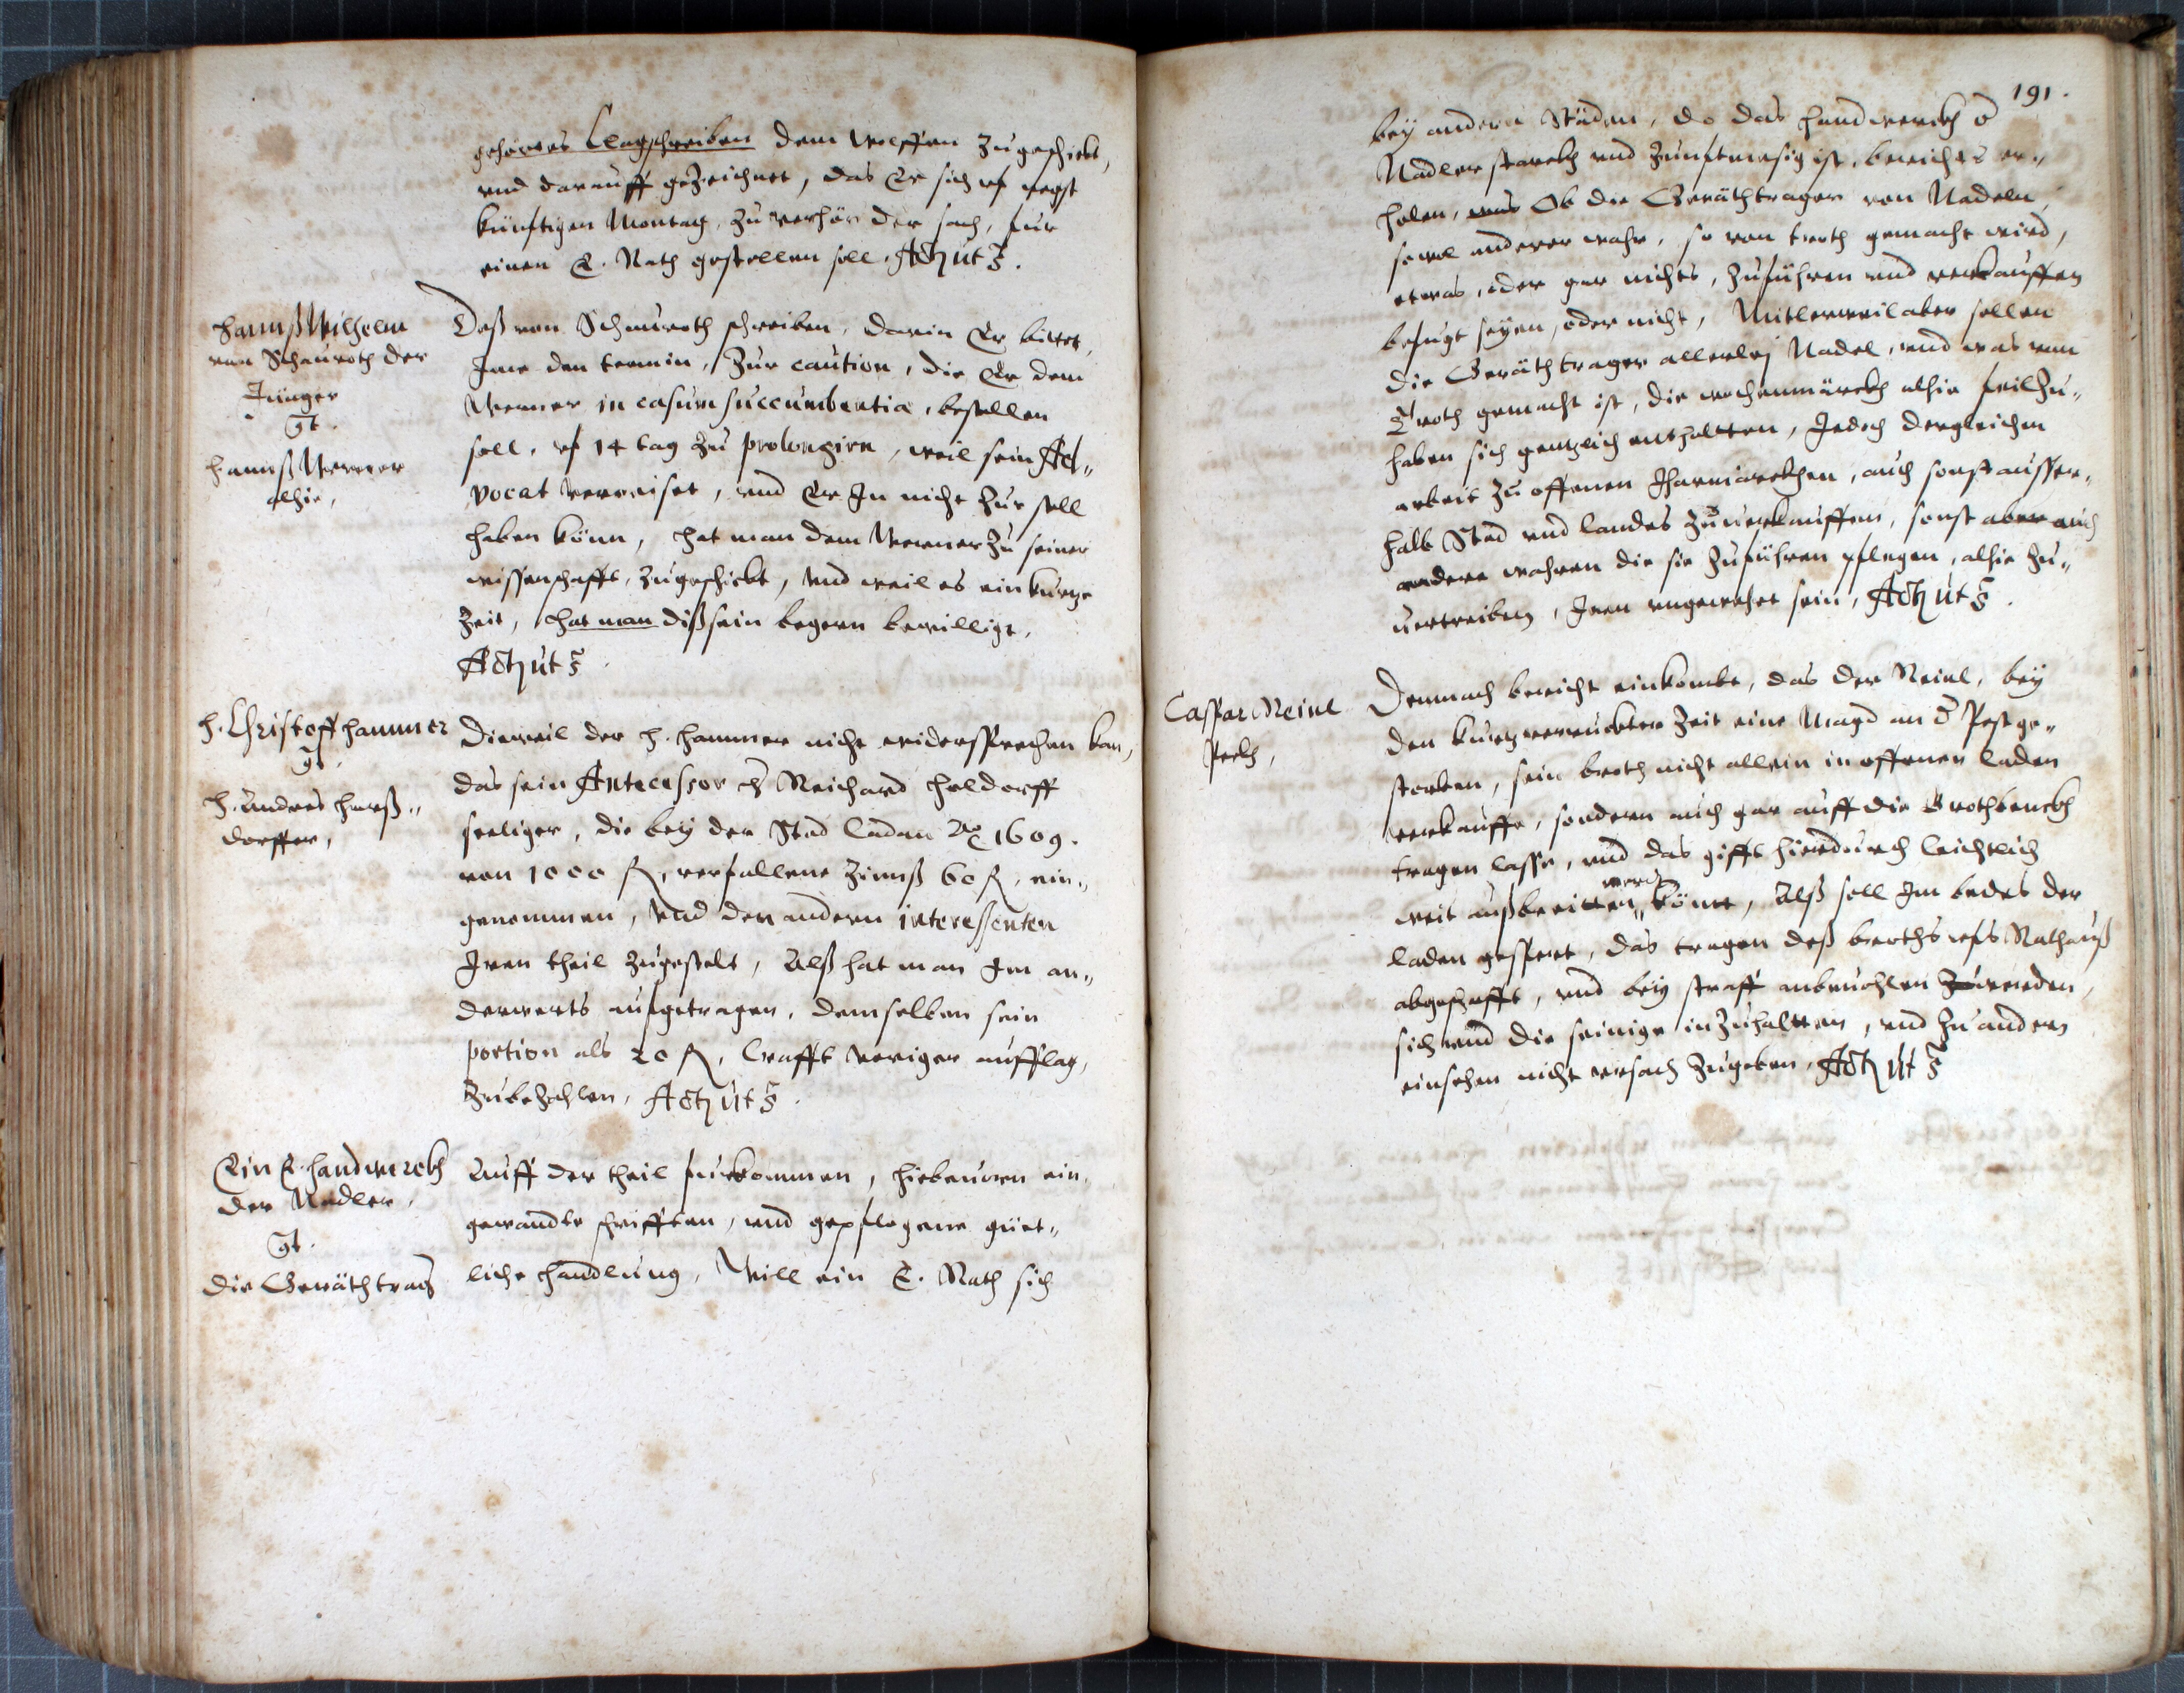 gehörtes Clagschreiben dem Wolffen zugeschickt,
vnd darauff gezeichnet, das Er sich vf negst
künfftigen Montag, zu verhör der sach, fur
einen E. Rath gestellen soll. Actz ut s.
Hannß Wilhelm
von Schauroth der
Jünger
gt.
Hannß Werner
alhie,
Deß von Schauroth schreiben, darin Er bittet,
Jme den termin, zur caution, die Er dem
Werner in casum succumbentiæ, bestellen
soll, vf 14 tag zu prolongirn, weil sein Ad„
vocat verreiset, vnd Er Jn nicht zur stell
haben könn, hat man dem Werner zu seiner
wissenschafft, zugeschickt, vnd weil es ein kurtze
Zeit, hat man diß sein begern bewilligt,
Actz ut s.
H. Christoff Hammer
gt.
H. Andres Harß„
dorffer,
Dieweil der H. Hammer nicht widersprechen kan,
das sein Antecessor H. Reichard Holdorff
seeliger, die bey der Stad Laden Ao 1609.
von 1000 fl, verfallene Zinnß 60 fl, ein„
genommen, vnd den andern interessenten
Jren theil zugestelt, Alß hat man Jm an„
derwerts aufgetragen, demselben sein
portion als 20 fl, Crafft voriger aufflag,
zubezahlen, Actz ut s.
Ein E. Handwerck
der Nadler,
gt.
Die Geräthtrag
Auff der theil furkommen, hiebeuorn ein„
gewandte schrifften, vnd gepflogene güet„
liche Handlung, Will ein E. Rath sich
191.
bey andern Städen, do das Handwerck d
Nadler starck vnd Zunfftmesig ist, berichts er„
holen, was Ob die Geräthtrager von Nadeln,
sowol anderer wahr, so von troth gemacht wird,
etwas, oder gar nichts, zuführen vnd verkauffen
befugt seyen, oder nicht, Mitlerweil aber sollen
die Geräthtrager allerley Nadel, vnd was vom
Troth gemacht ist, die wochenmärck alhie feilzu„
haben sich gentzlich enthaltten, Jedoch dergleichen
arbeit zu offenen Jharmarckhen, auch sonst ausser„
halb Stad vnd Landes zuuerkauffen, sonst aber auch
andere wahren die sie zuführen pflegen, alhie zu„
uertreiben, Jnen vngewehrt sein, Actz ut s.
Caspar Meinl
Peckh,
Demnach bericht einkombt, das der Meinl, bey
den kurtz verruckter Zeit eine Magd an d Pest ge„
storben, sein broth nicht allein in offenen Laden
verkauffe, sondern auch gar auff die Brothbenckh
tragen lasse, vnd das gifft hierdurch leichtlich
werd
weit außbreitten„ könt, Alß soll Jm bedes der
Laden gespert, das tragen deß broths vfs Rathauß
abgeschafft, vnd bey straff anbeuohlen werden,
sich vnd die seinige inzuhaltten, vnd zu andern
einsehen nicht vrsach zugeben, Actz ut s